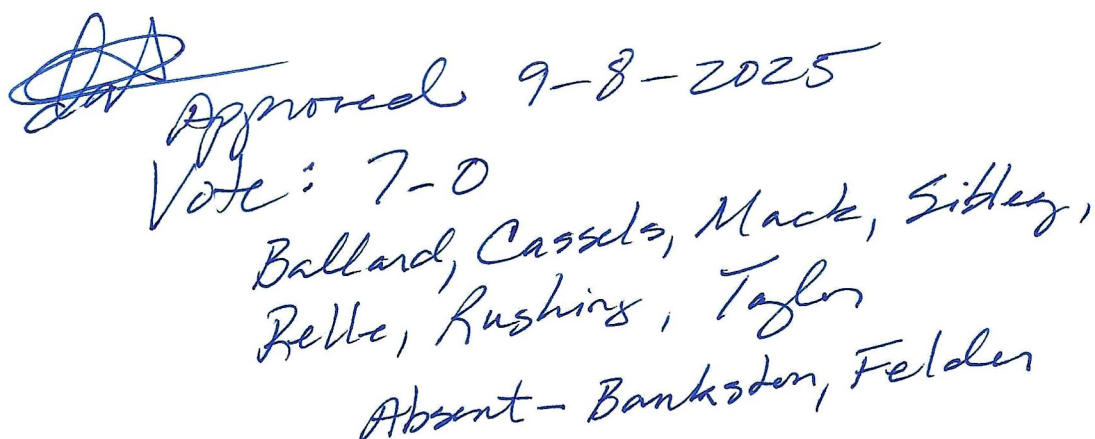 Approved 9-8-2025
Vote: 7-0
Ballard, Cassels, Mack, Sibley,
Relle, Rushing, Taylor
Absent - Bankston, Felder